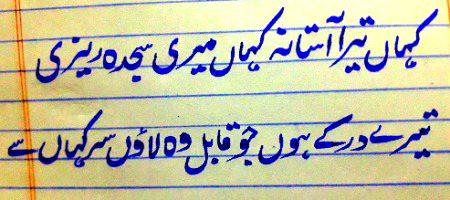 کہاں تیرا آستانہ کہاں میری سجدہ ریزی
تیرے در کے ہوں جو قابل وہ لاؤں سر کہاں سے